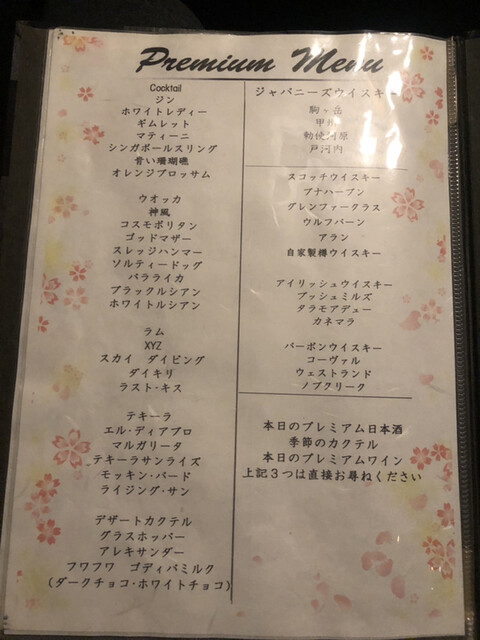 Premium Menu
Cocktail
ジン
ホワイトレディー
ギムレット
マティーニ
シンガポールスリング
青い珊瑚礁
オレンジブロッサム
ウオッカ
神風
コスモポリタン
ゴッドマザー
スレッジハンマー
ソルティードッグ
バラライカ
ブラックルシアン
ホワイトルシアン
ラム
XYZ
スカイ ダイビング
ダイキリ
ラスト・キス
テキーラ
エル・ディアブロ
マルガリータ
テキーラサンライズ
モッキン・バード
ライジング・サン
デザートカクテル
グラスホッパー
アレキサンダー
フワフワ ゴディバミルク
(ダークチョコ・ホワイトチョコ)
ジャパニーズウイスキー
駒ヶ岳
甲州
勅使河原
戸河内
スコッチウイスキー
ブナハーブン
グレンファークラス
ウルフバーン
アラン
自家製樽ウイスキー
アイリッシュウイスキー
ブッシュミルズ
タラモアデュー
カネマラ
バーボンウイスキー
コーヴァル
ウェストランド
ノブクリーク
本日のプレミアム日本酒
季節のカクテル
本日のプレミアムワイン
上記3つは直接お尋ねください